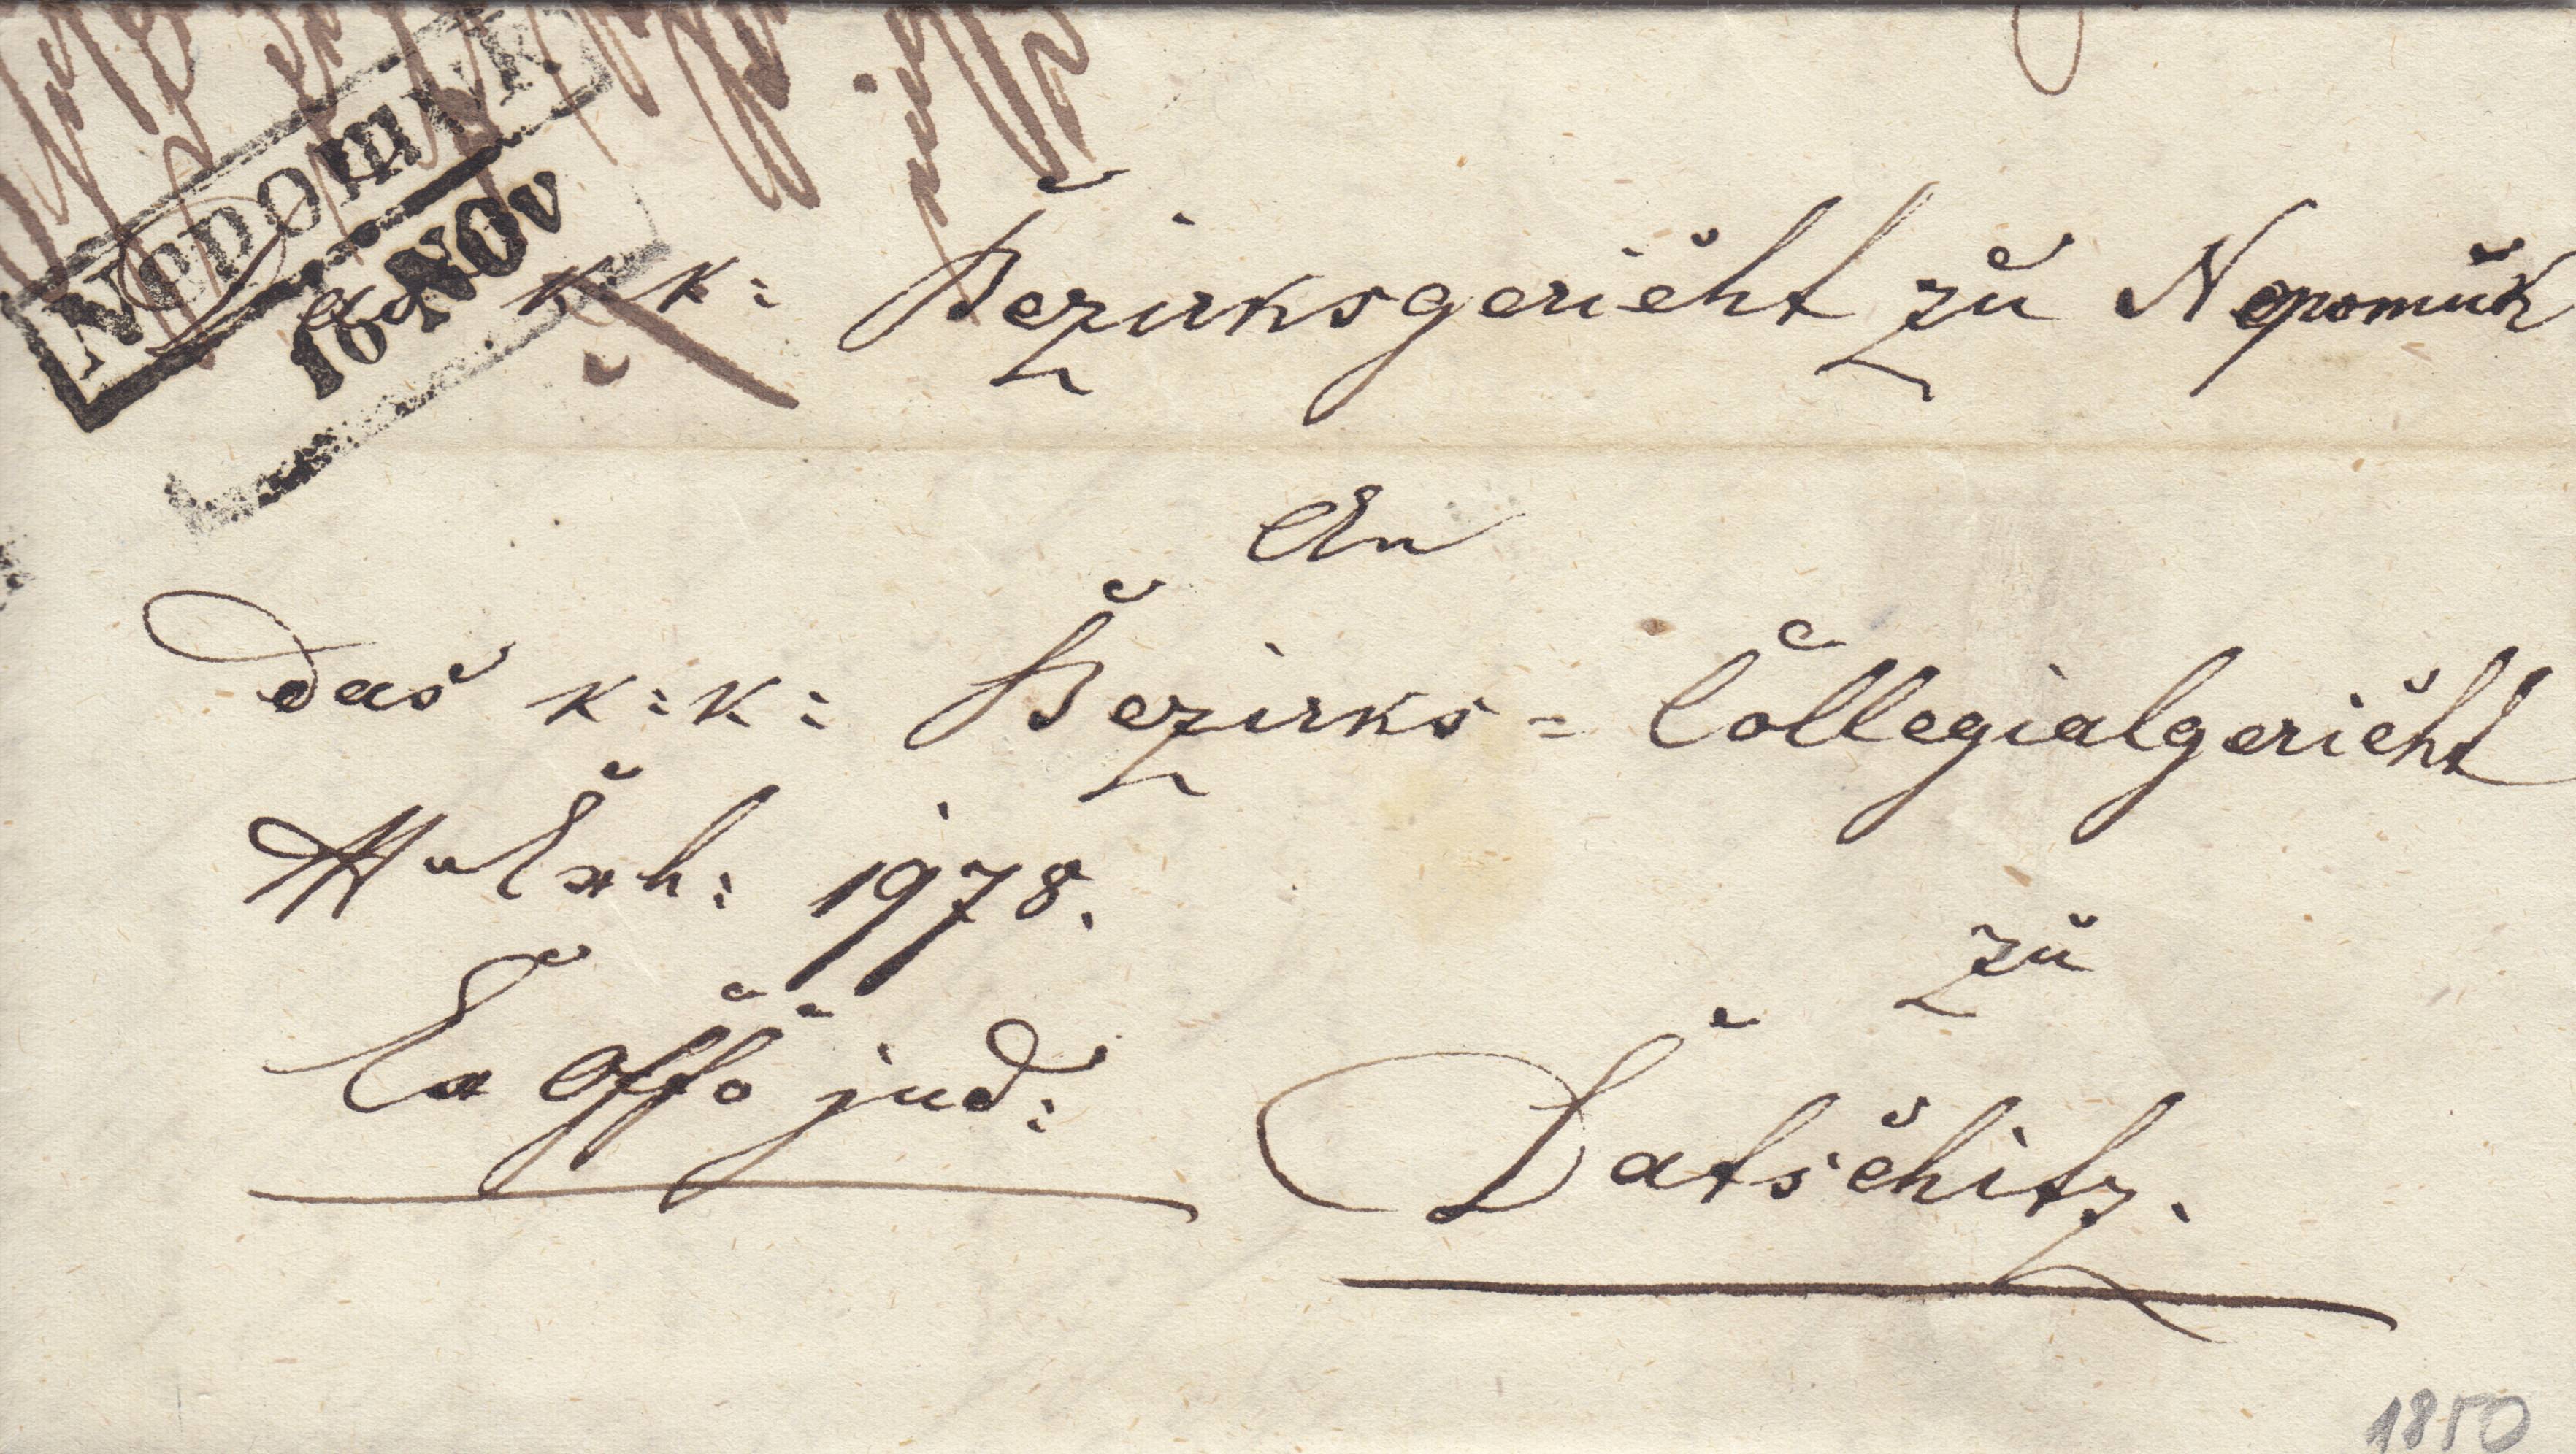 NEPOMUK
16 NOV
k k: Bezirksgericht zu Nepomuk
An
das k: k: Bezirks = Collegialgericht
Exh: 1978.
zu
Ex Offo jud:
Datschitz.
1850